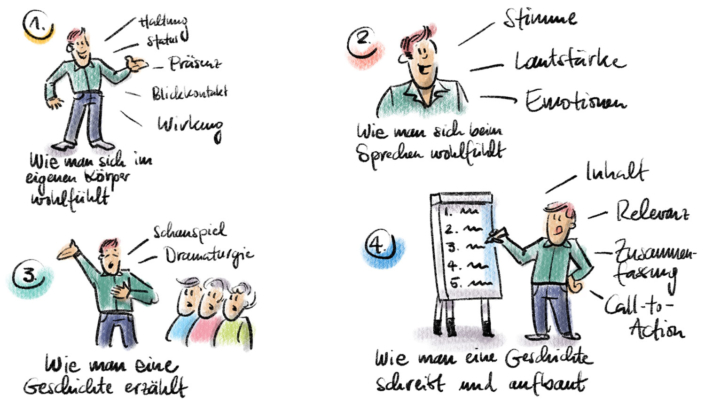 1.
Haltung
Status
Präsenz
Blickkontakt
Wirkung
Wie man sich im
eigenen Körper
wohlfühlt
2.
Stimme
Lautstärke
Emotionen
Wie man sich beim
Sprechen wohlfühlt
3.
Schauspiel
Dramaturgie
Wie man eine
Geschichte erzählt
4.
1.
2.
3.
4.
5.
Inhalt
Relevanz
Zusammen-
fassung
Call-to-
Action
Wie man eine Geschichte
schreibt und aufbaut